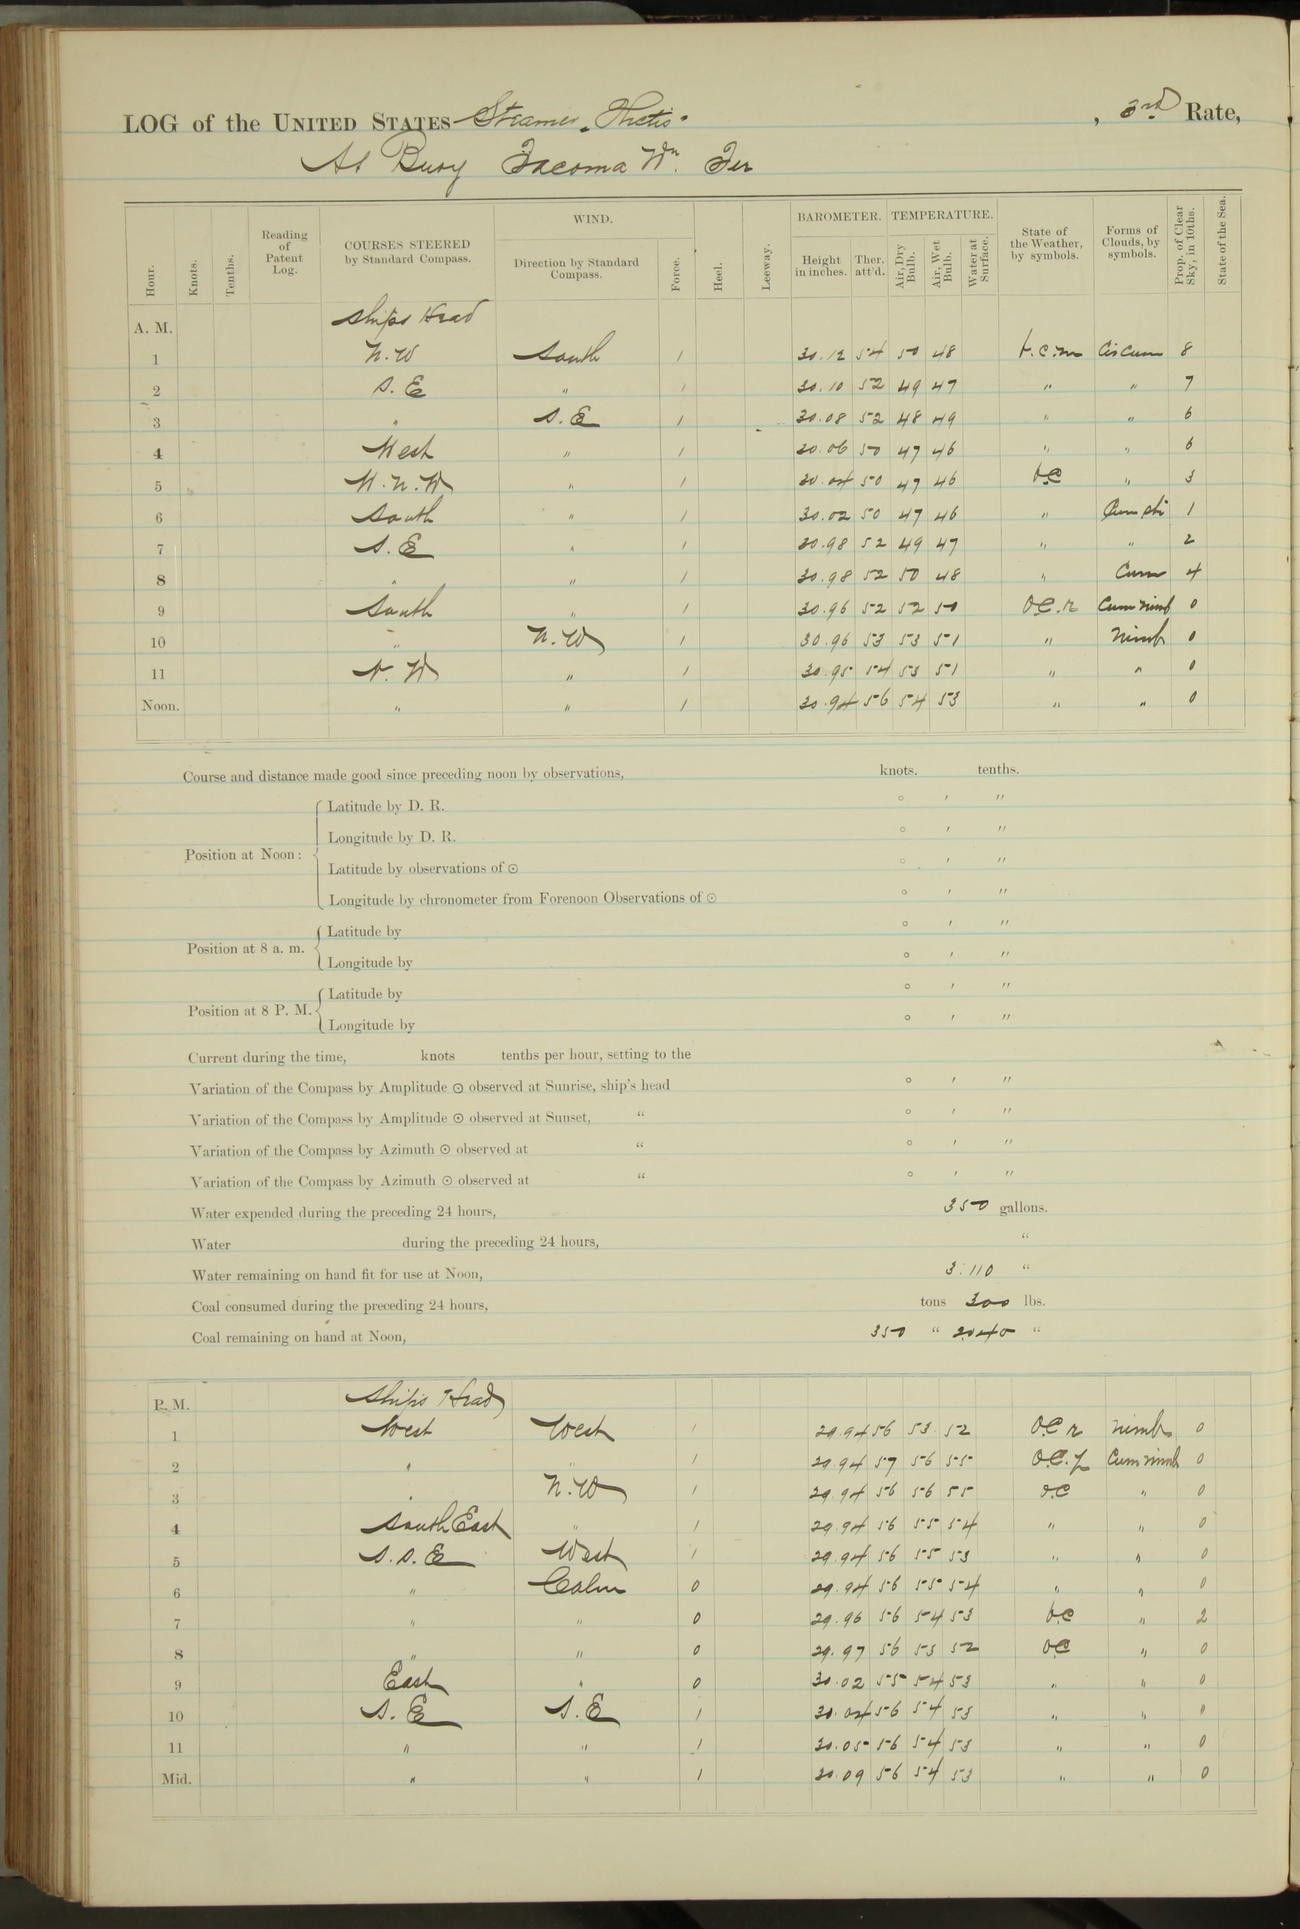 LOG of the UNITED STATES Steamer "Thetis" , 3rd Rate,
At Buoy Tacoma Wn. Ter
Hour. Knots. Tenths. Reading of Patent Log. COURSES STEERED by Standard Compass. WIND. Direction by Standard Compass. Force. Heel. Leeway. BAROMETER. Height in inches. Ther. att'd. TEMPERATURE. Air, Dry Bulb. Air, Wet Bulb. Water at Surface. State of the Weather, by symbols. Forms of Clouds, by symbols. Prop. of Clear Sky, in 10ths. State of the Sea.
A. M. Ships Head
1 N.W South 1 30.12 54 50 48 b.c.m Circum 8
2 S.E " 1 30.10 52 49 47 " " 7
3 " S.E 1 30.08 52 48 49 " " 6
4 West " 1 30.06 50 47 46 " " 6
5 W.N.W " 1 30.04 50 47 46 b.c " 3
6 South " 1 30.02 50 47 46 " Cum str 1
7 S.E " 1 30.98 52 49 47 " " 2
8 " " 1 30.98 52 50 48 " Cum 4
9 South " 1 30.96 52 52 50 O.C.r Cum nimb 0
10 " N.W 1 30.96 53 53 51 " nimb 0
11 N.W " 1 30.95 54 53 51 " " 0
Noon. " " 1 30.94 56 54 53 " " 0
Course and distance made good since preceding noon by observations, knots. tenths.
Position at Noon: Latitude by D. R. ° ′ ″
Longitude by D. R. ° ′ ″
Latitude by observations of ⊙ ° ′ ″
Longitude by chronometer from Forenoon Observations of ⊙ ° ′ ″
Position at 8 a. m. Latitude by ° ′ ″
Longitude by ° ′ ″
Position at 8 P. M. Latitude by ° ′ ″
Longitude by ° ′ ″
Current during the time, knots tenths per hour, setting to the
Variation of the Compass by Amplitude ⊙ observed at Sunrise, ship's head ° ′ ″
Variation of the Compass by Amplitude ⊙ observed at Sunset, " ° ′ ″
Variation of the Compass by Azimuth ⊙ observed at " ° ′ ″
Variation of the Compass by Azimuth ⊙ observed at " ° ′ ″
Water expended during the preceding 24 hours, 350 gallons.
Water during the preceding 24 hours, "
Water remaining on hand fit for use at Noon, 3.110 "
Coal consumed during the preceding 24 hours, tons 300 lbs.
Coal remaining on hand at Noon, 350 " 2040 "
P. M. Ships Head
1 West West 1 29.94 56 53 52 O.C r nimb 0
2 " " 1 29.94 57 56 55 O.C. Cum nimb 0
3 " N.W 1 29.94 56 56 55 O.C " 0
4 South East " 1 29.94 56 55 54 " " 0
5 S.S.E West 1 29.94 56 55 53 " " 0
6 " Calm 0 29.94 56 55 54 " " 0
7 " " 0 29.96 56 54 53 b.c " 2
8 " " 0 29.97 56 53 52 O.C " 0
9 East " 0 30.02 55 54 53 " " 0
10 S.E S.E 1 30.04 56 54 53 " " 0
11 " " 1 30.05 56 54 53 " " 0
Mid. " " 1 30.09 56 54 53 " " 0